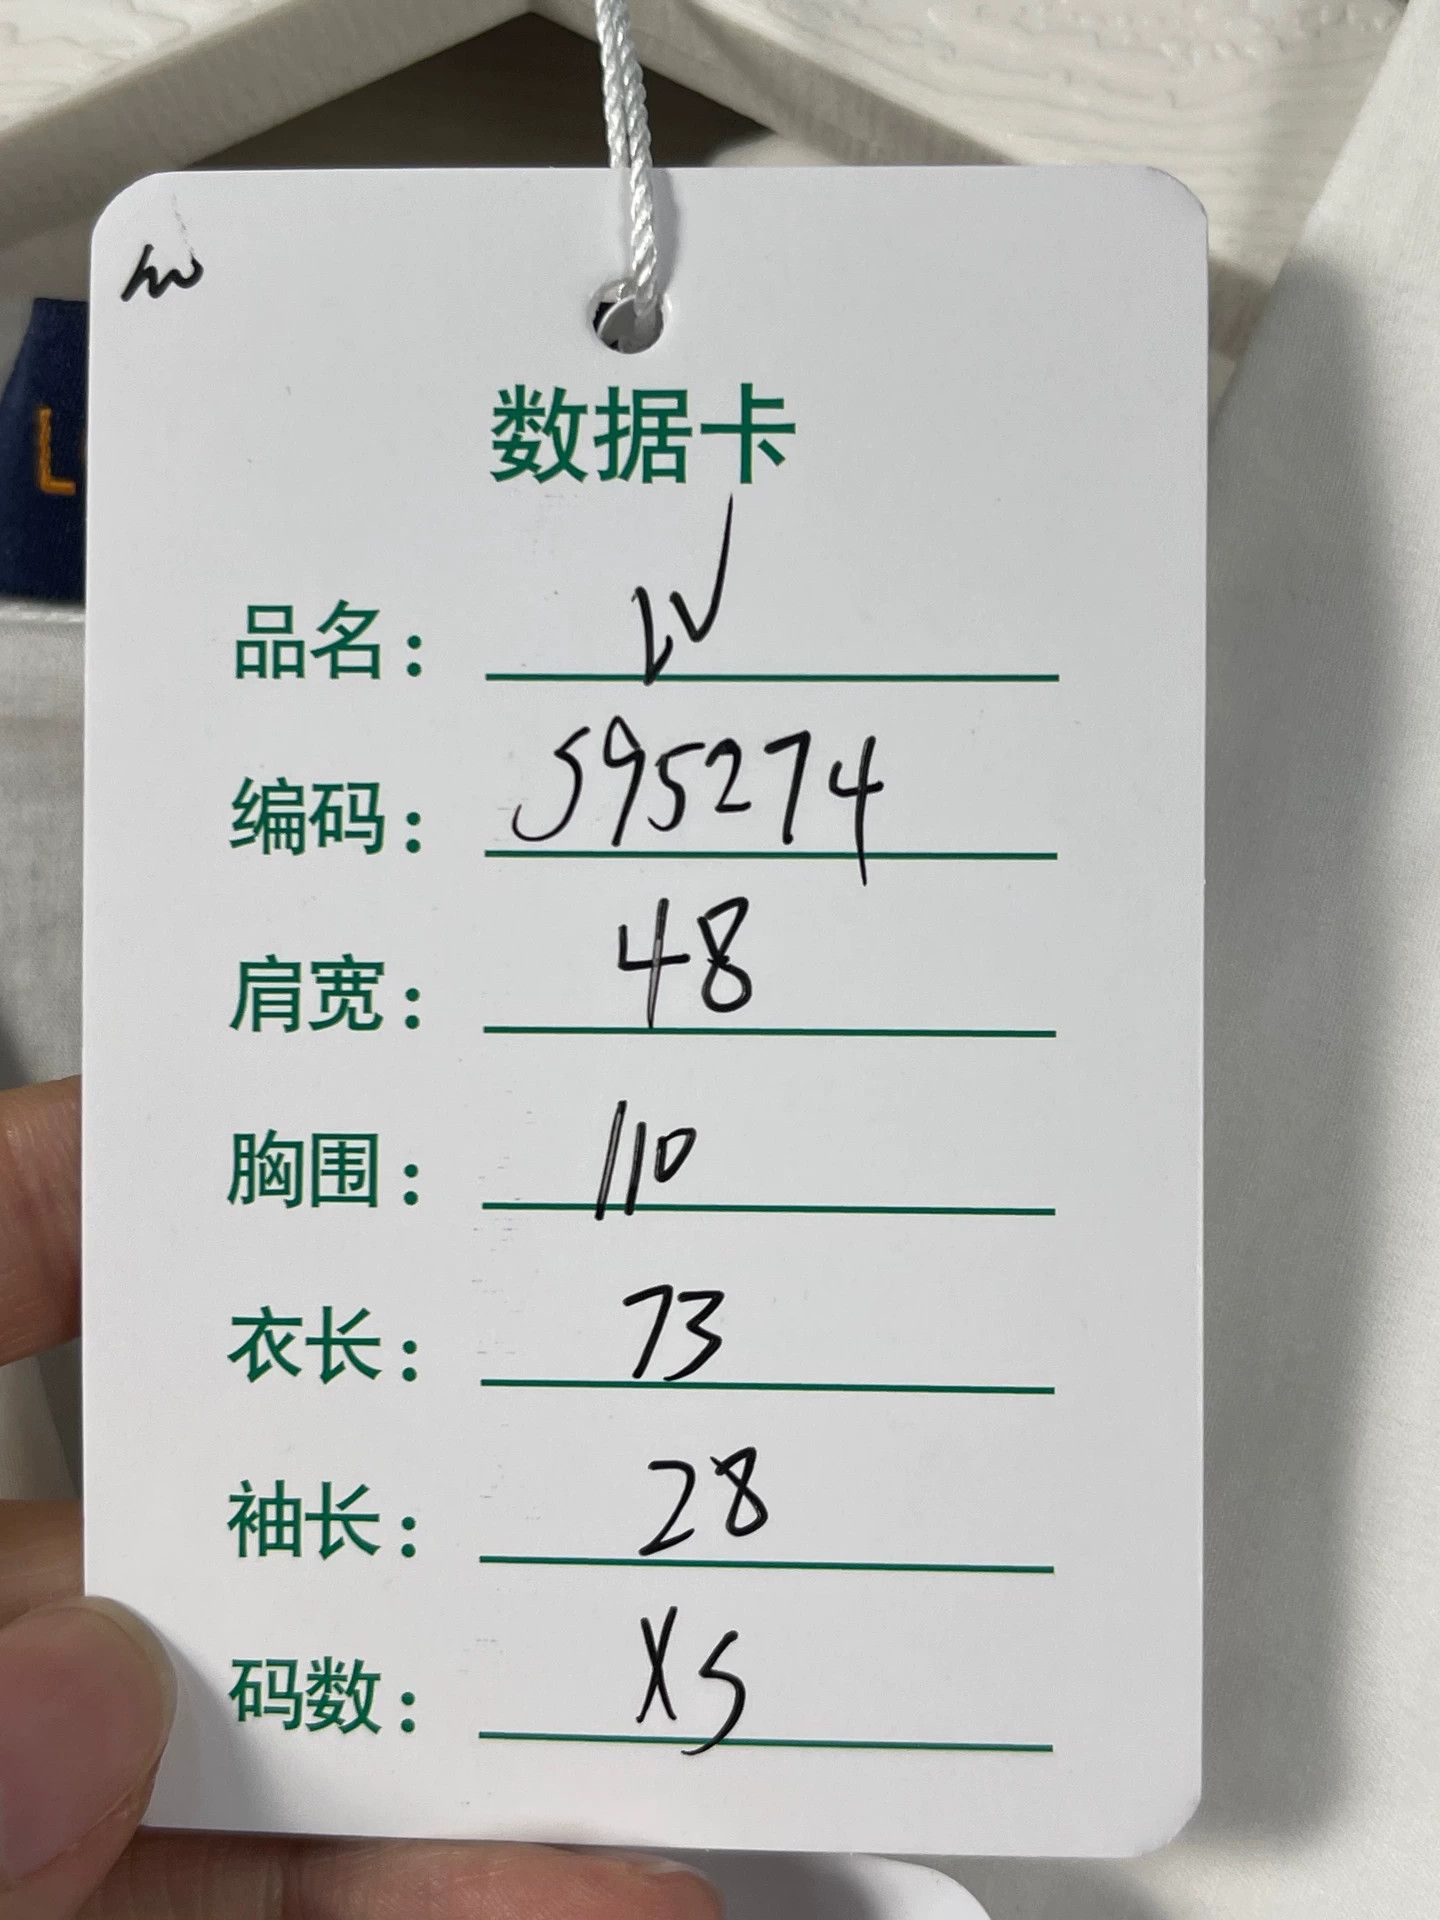 数据卡
品名： LV
编码： S95274
肩宽： 48
胸围： 110
衣长： 73
袖长： 28
码数： XS